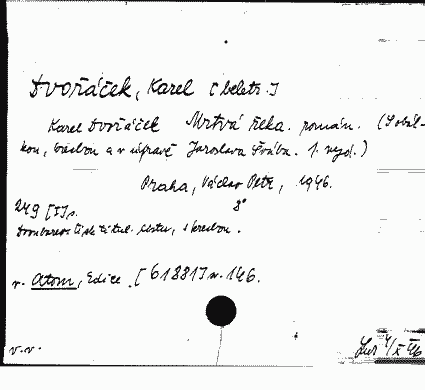 Dvořáček, Karel [beletr.]
Karel Dvořáček Mrtvá řeka. román. (S obál-
kou, kresbou a v úpravě Jaroslava Švába. 1. vyd.)
Praha, Václav Petr, 1946.
8°
249 [I] s.
Dvoubarev. tisk titul. listu, s kresbou.
v. Atom, Edice. [61881] n. 146.
v.v.